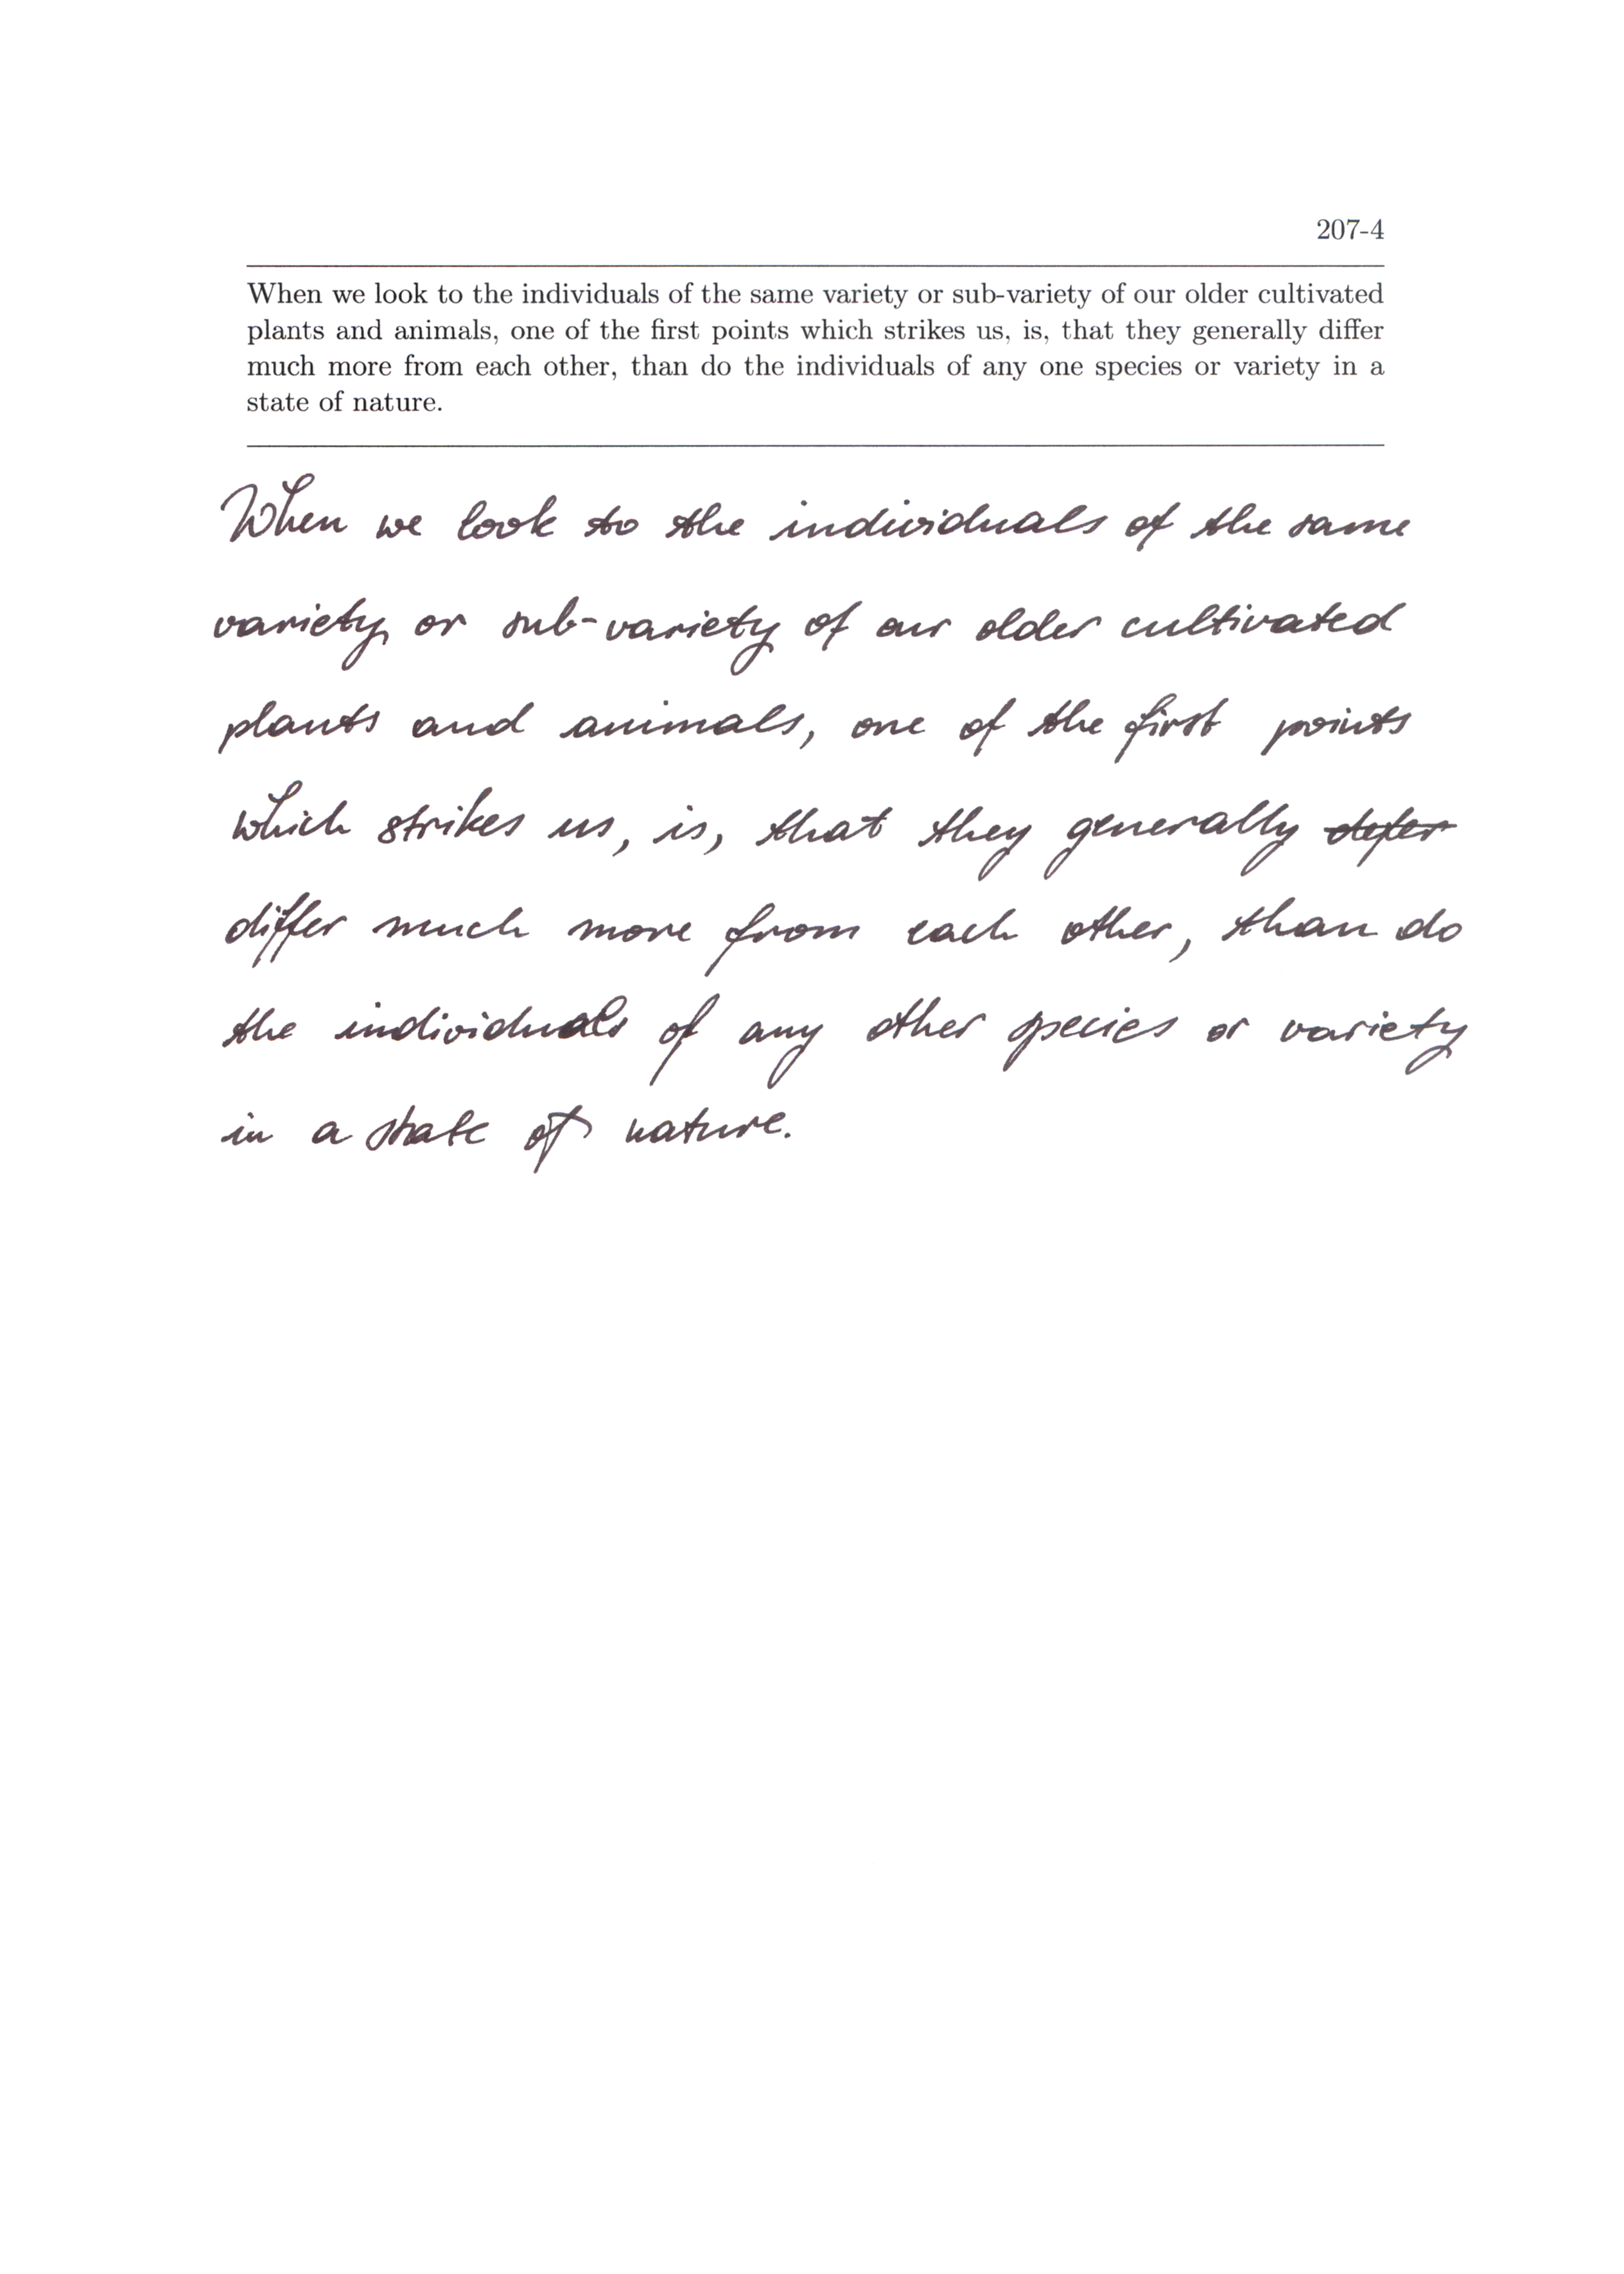 207-4
When we look to the individuals of the same variety or sub-variety of our older cultivated
plants and animals, one of the first points which strikes us, is, that they generally differ
much more from each other, than do the individuals of any one species or variety in a
state of nature.
When we look to the individuals of the same
variety or sub-variety of our older cultivated
plants and animals, one of the first points
which strikes us, is, that they generally
differ much more from each other, than do
the individuals of any other species or variety
in a state of nature.